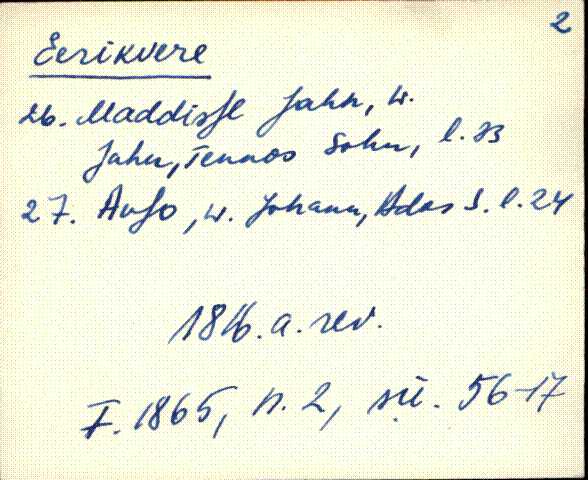 2
Eerikvere
26. Maddisse Jahn, w.
Jahn, Tennos Sohn, l. 23
27. Anso, w. Johann, Adas S. l. 24
1816. a. rev.
F. 1865, n. 2, sü. 56-17